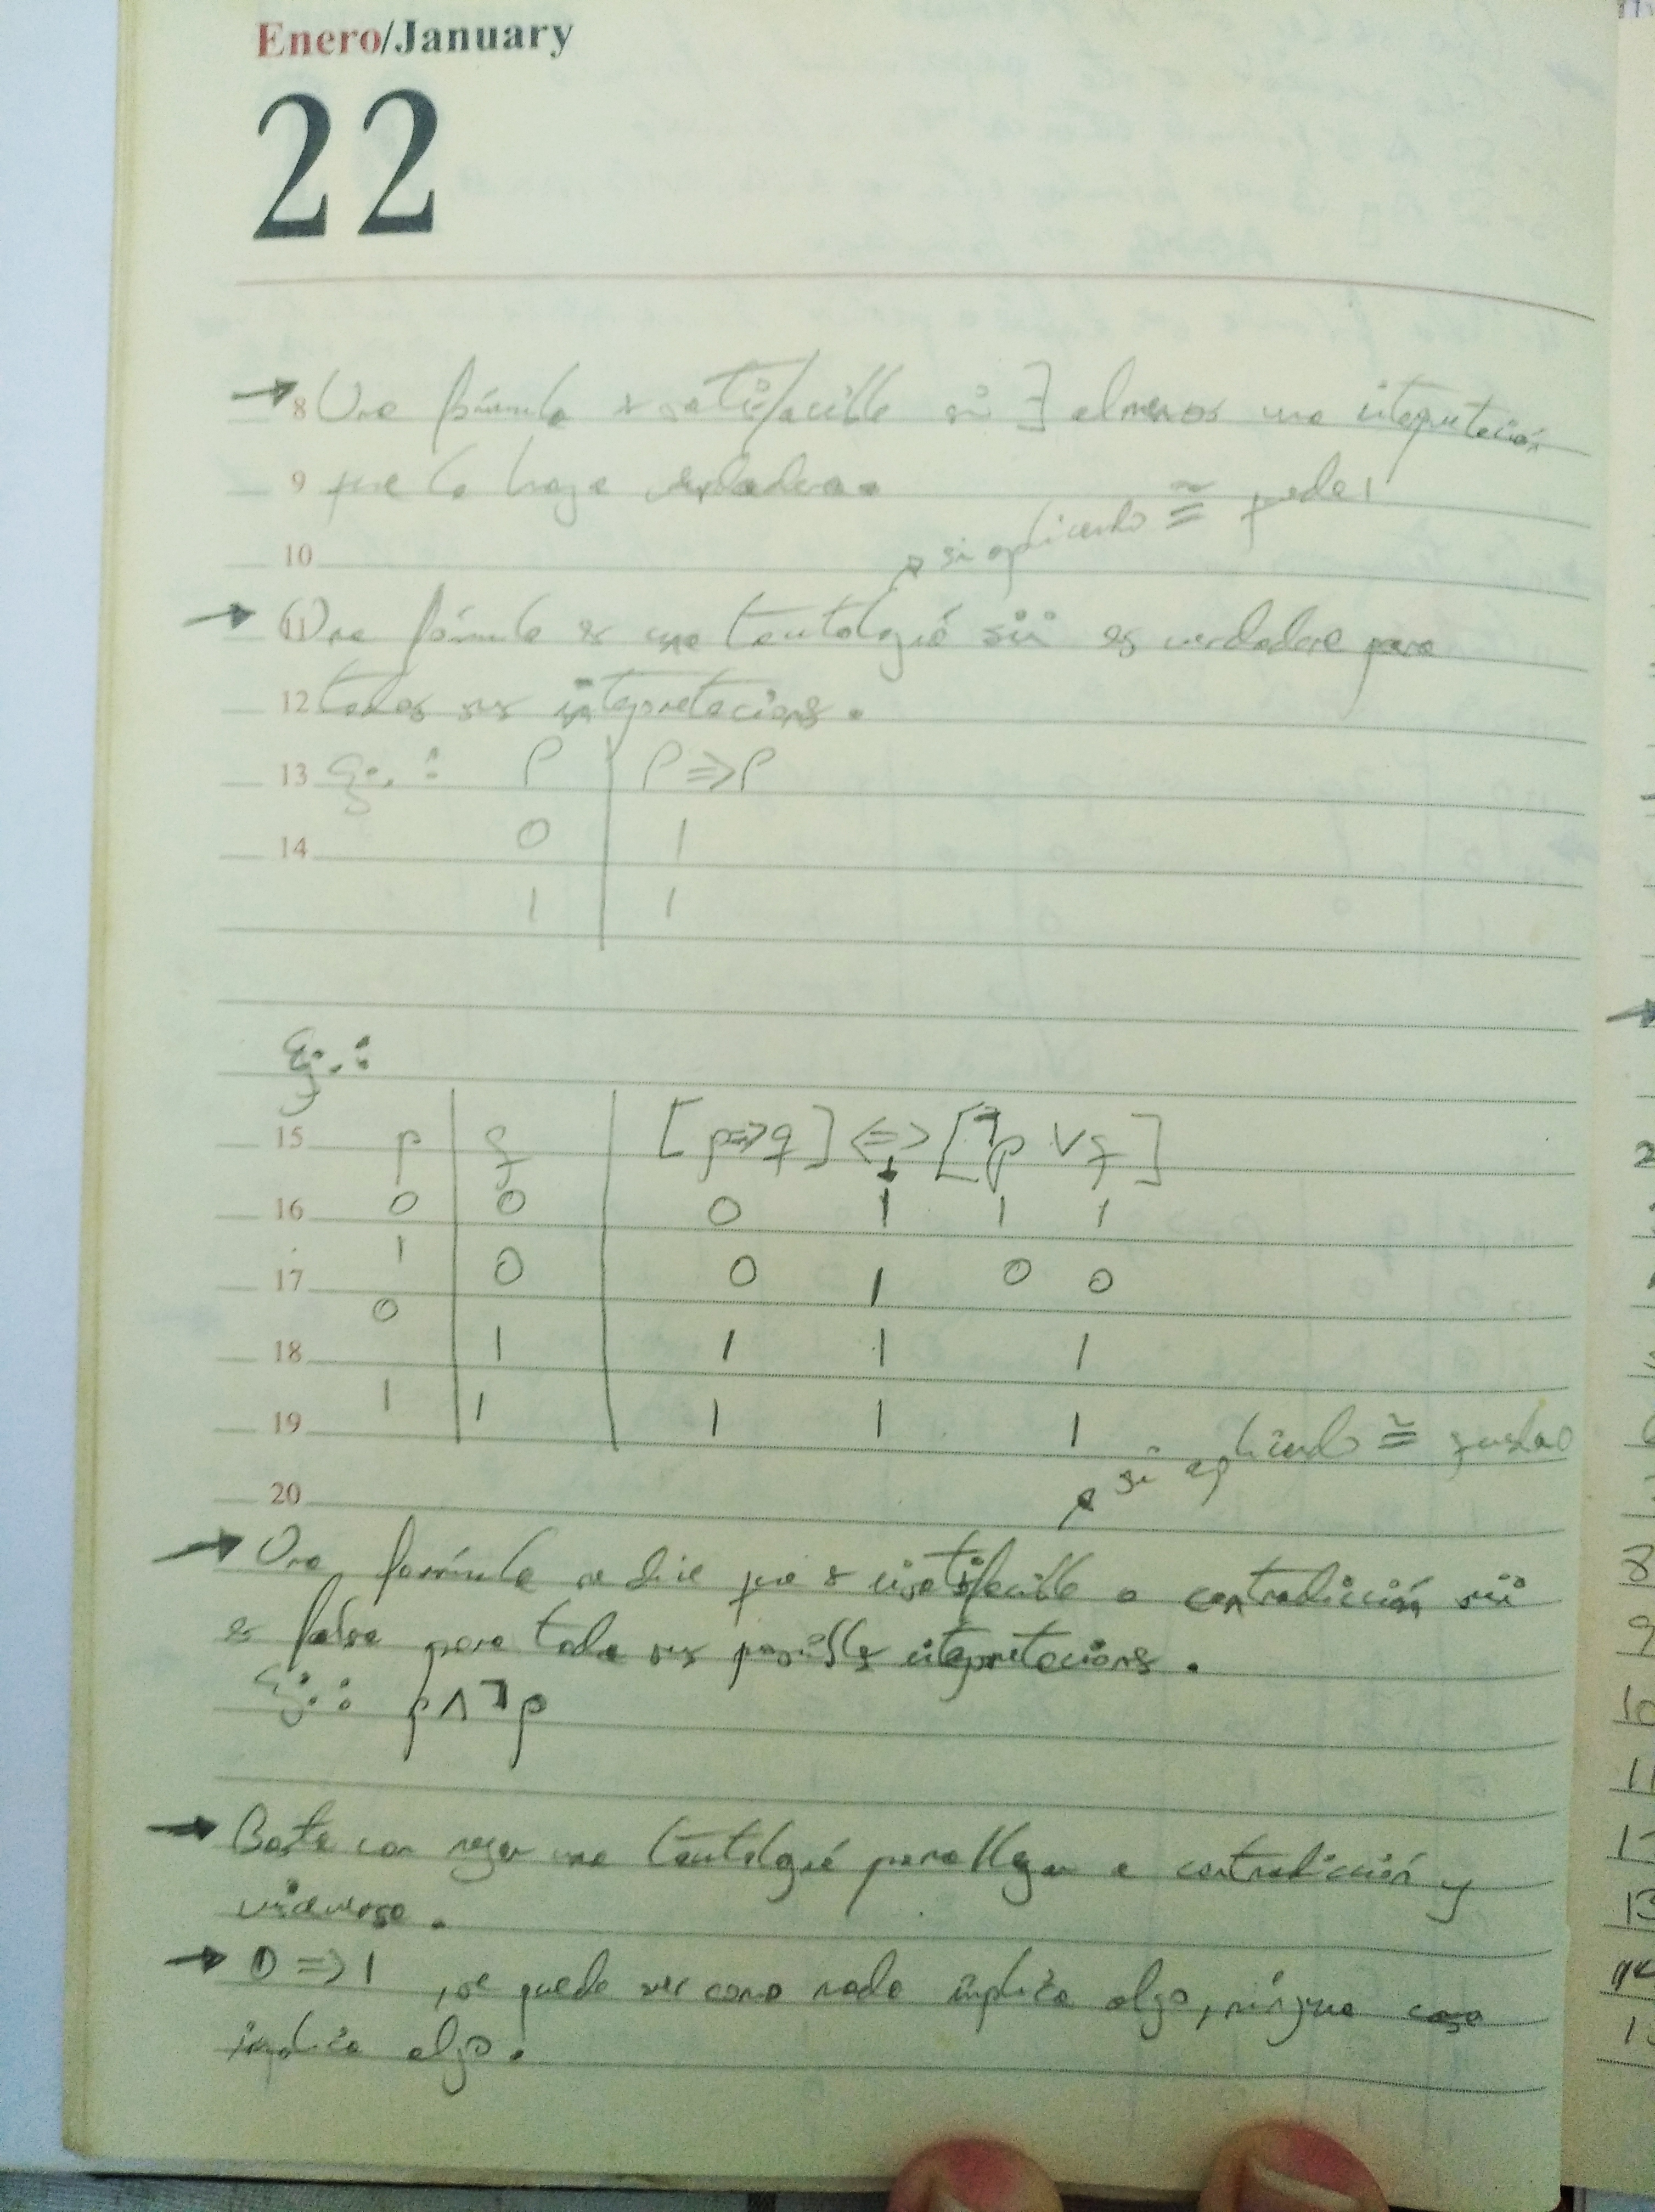 Enero/January
22
→ 8 Una fórmula es satisfacible sii ∃ al menos una intepretación
9 que la haga verdadera.
si aplicando ≅ queda 1
10
→ 11 Una fórmula es una tautología sii es verdadera para
12 todas sus intepretacions.
13 Ej.: P | P => P
14 0 | 1
1 | 1
Ej.:
15 p | q | [p=>q] <=> [¬p ∨ q]
16 0 | 0 | 0 1 1 1
17 1 | 0 | 0 1 0 0
18 0 | 1 | 1 1 1
19 1 | 1 | 1 1 1
si aplicando ≅ queda 0
20
→ Una formúla se dice que es insatisfacible o contradicción sii
es falsa para toda sus posibles intepretacions.
Ej.: p ∧ ¬p
→ Basta con negar una tautología para llegar a contradicción y
viceverso.
→ 0 => 1, se puede ver como nada implica algo, ningua cosa
implica algo.
8
9
10
11
13